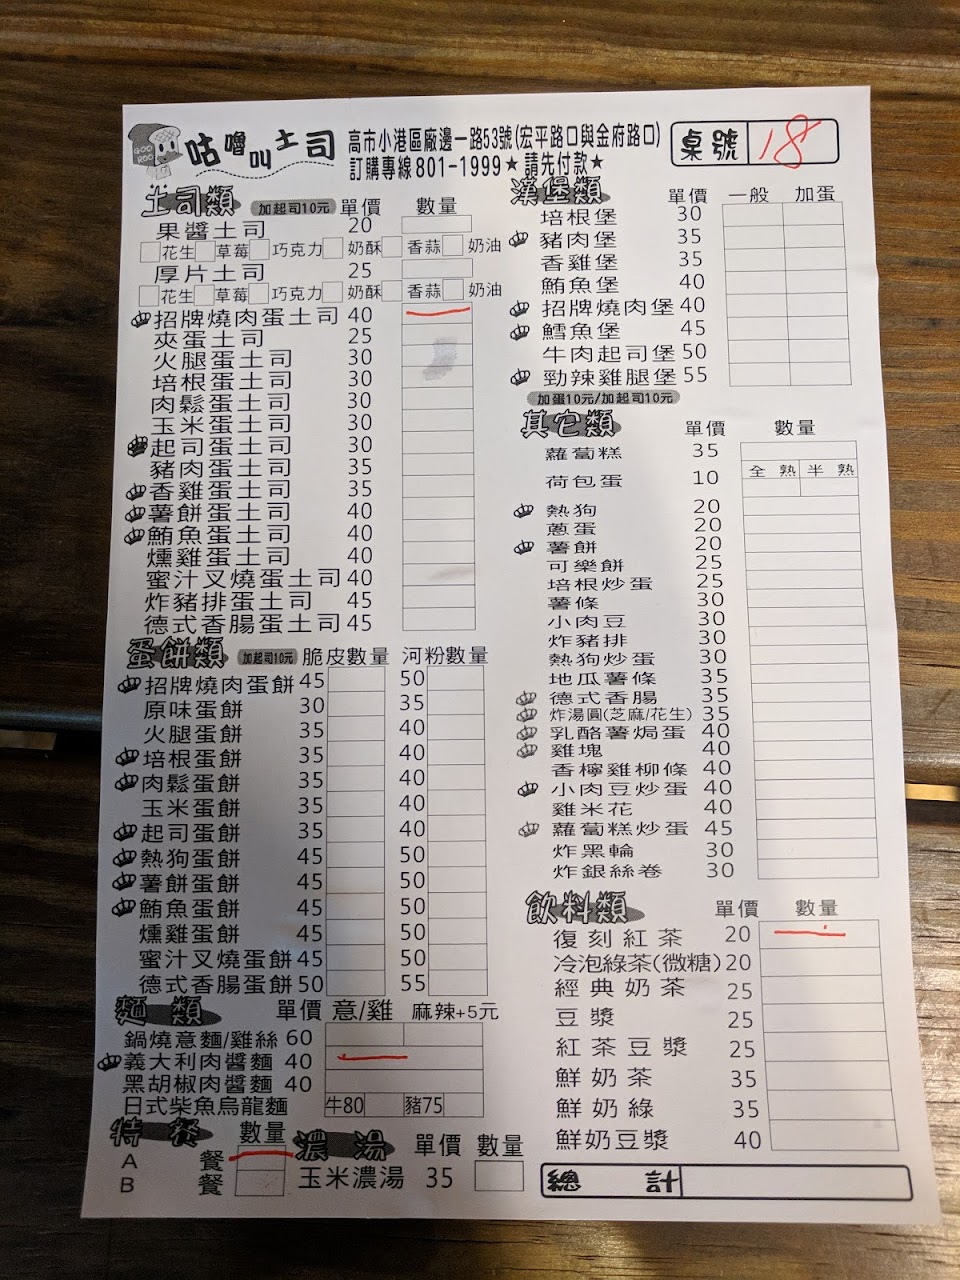 GOO ROO 咕嚕叫土司
高市小港區廠邊一路53號(宏平路口與金府路口)
訂購專線801-1999★請先付款★
桌號 18
土司類 加起司10元 單價 數量
果醬土司 20
花生 草莓 巧克力 奶酥 香蒜 奶油
厚片土司 25
花生 草莓 巧克力 奶酥 香蒜 奶油
招牌燒肉蛋土司 40
夾蛋土司 25
火腿蛋土司 30
培根蛋土司 30
肉鬆蛋土司 30
玉米蛋土司 30
起司蛋土司 30
豬肉蛋土司 35
香雞蛋土司 35
薯餅蛋土司 40
鮪魚蛋土司 40
燻雞蛋土司 40
蜜汁叉燒蛋土司 40
炸豬排蛋土司 45
德式香腸蛋土司 45
蛋餅類 加起司10元 脆皮數量 河粉數量
招牌燒肉蛋餅 45 50
原味蛋餅 30 35
火腿蛋餅 35 40
培根蛋餅 35 40
肉鬆蛋餅 35 40
玉米蛋餅 35 40
起司蛋餅 35 40
熱狗蛋餅 45 50
薯餅蛋餅 45 50
鮪魚蛋餅 45 50
燻雞蛋餅 45 50
蜜汁叉燒蛋餅 45 50
德式香腸蛋餅 50 55
麵類 單價 意/雞 麻辣+5元
鍋燒意麵/雞絲 60
義大利肉醬麵 40
黑胡椒肉醬麵 40
日式柴魚烏龍麵 牛80 豬75
特餐 數量
A 餐
B 餐
濃湯 單價 數量
玉米濃湯 35
漢堡類 單價 一般 加蛋
培根堡 30
豬肉堡 35
香雞堡 35
鮪魚堡 40
招牌燒肉堡 40
鱈魚堡 45
牛肉起司堡 50
勁辣雞腿堡 55
加蛋10元/加起司10元
其它類 單價 數量
蘿蔔糕 35
全熟 半熟
荷包蛋 10
熱狗 20
蔥蛋 20
薯餅 20
可樂餅 25
培根炒蛋 25
薯條 30
小肉豆 30
炸豬排 30
熱狗炒蛋 30
地瓜薯條 35
德式香腸 35
炸湯圓(芝麻/花生) 35
乳酪薯焗蛋 40
雞塊 40
香檸雞柳條 40
小肉豆炒蛋 40
雞米花 40
蘿蔔糕炒蛋 45
炸黑輪 30
炸銀絲卷 30
飲料類 單價 數量
復刻紅茶 20
冷泡綠茶(微糖) 20
經典奶茶 25
豆漿 25
紅茶豆漿 25
鮮奶茶 35
鮮奶綠 35
鮮奶豆漿 40
總計